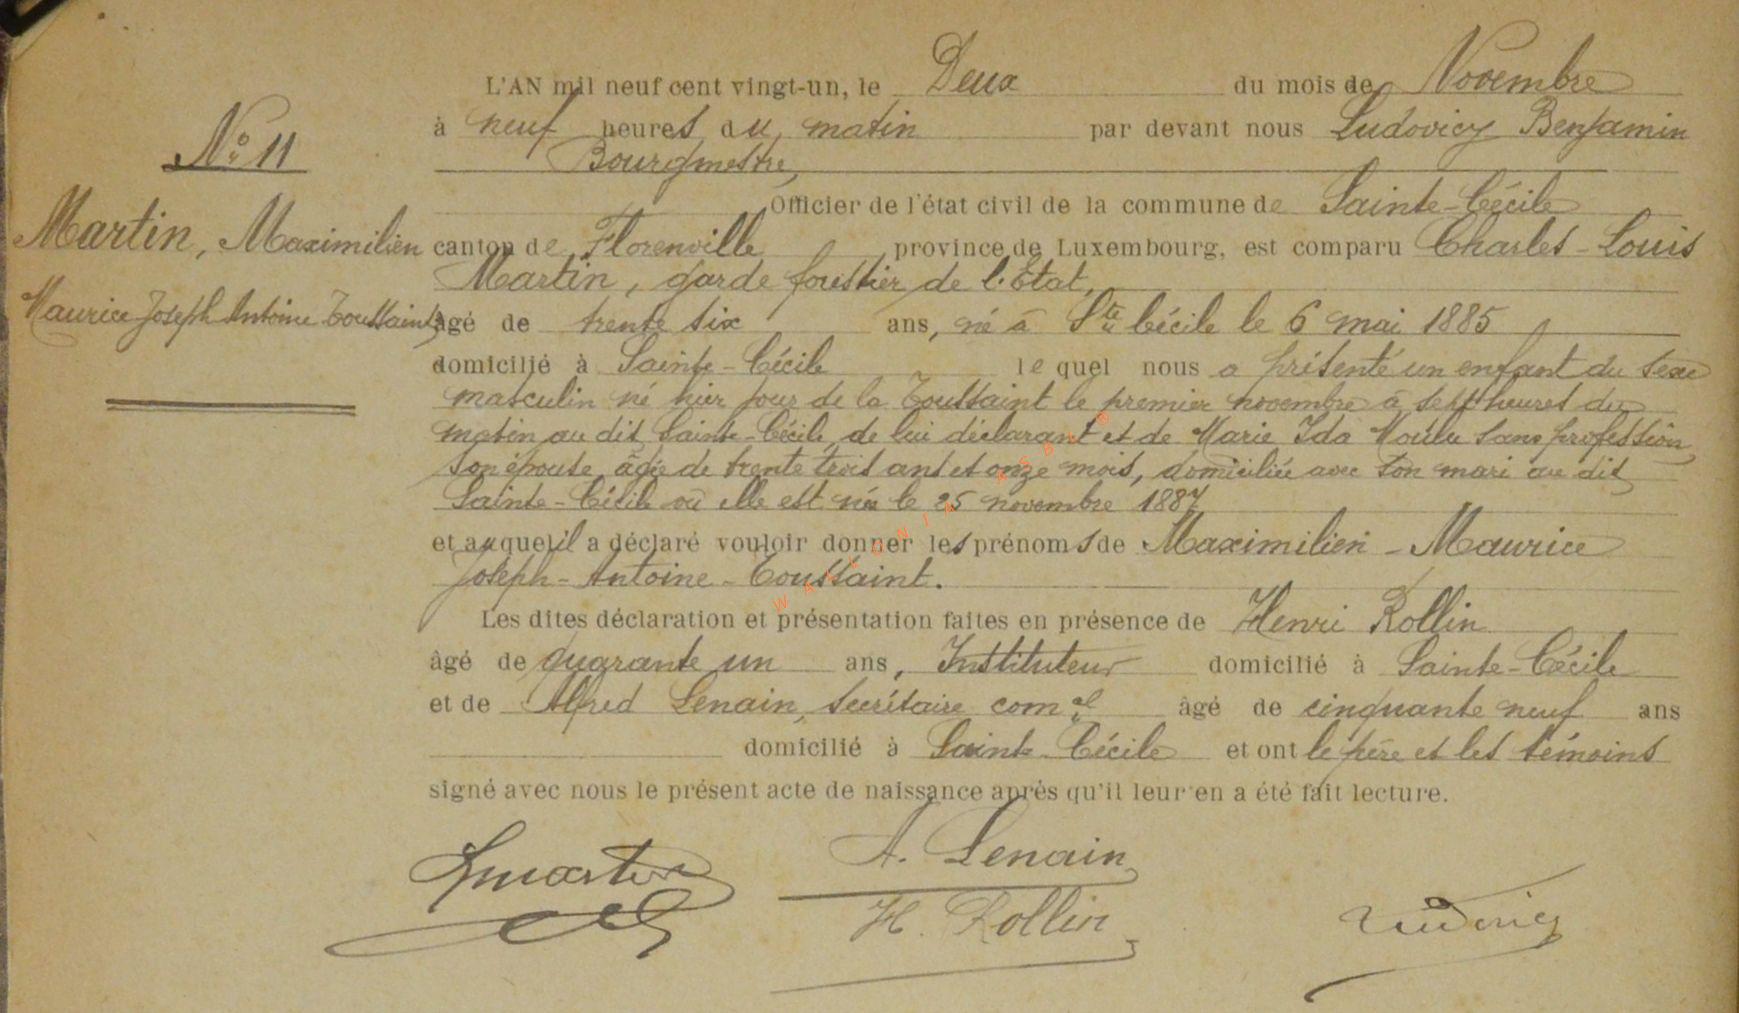 L'AN mil neuf cent vingt-un, le Deux du mois de Novembre
N° 11
à neuf heures du matin par devant nous Ludovicy Benjamin
Bourgmestre,
Officier de l'état civil de la commune de Sainte-Cécile
Martin, Maximilien
canton de Florenville province de Luxembourg, est comparu Charles-Louis
Martin, garde forestier de l'Etat,
Maurice Joseph Antoine Toussaint,
âgé de trente six ans, né à Ste Cécile le 6 mai 1885
domicilié à Sainte-Cécile lequel nous a présenté un enfant du sexe
masculin né hier jour de la Toussaint le premier novembre à sept heures du
matin au dit Sainte-Cécile, de lui déclarant et de Marie Ida Moulu sans profession,
son épouse, âgée de trente trois ans et onze mois, domiciliée avec son mari au dit
Sainte-Cécile où elle est née le 25 novembre 1887
et auquel il a déclaré vouloir donner les prénoms de Maximilien-Maurice
Joseph-Antoine-Toussaint.
WALLONIA ASBL
Les dites déclaration et présentation faites en présence de Henri Rollin
âgé de quarante un ans, Instituteur domicilié à Sainte-Cécile
et de Alfred Lenain, secrétaire comal âgé de cinquante neuf ans
domicilié à Sainte-Cécile et ont le père et les témoins
signé avec nous le présent acte de naissance après qu'il leur en a été fait lecture.
A. Lenain
Lmartin
H. Rollin
Ludovicy